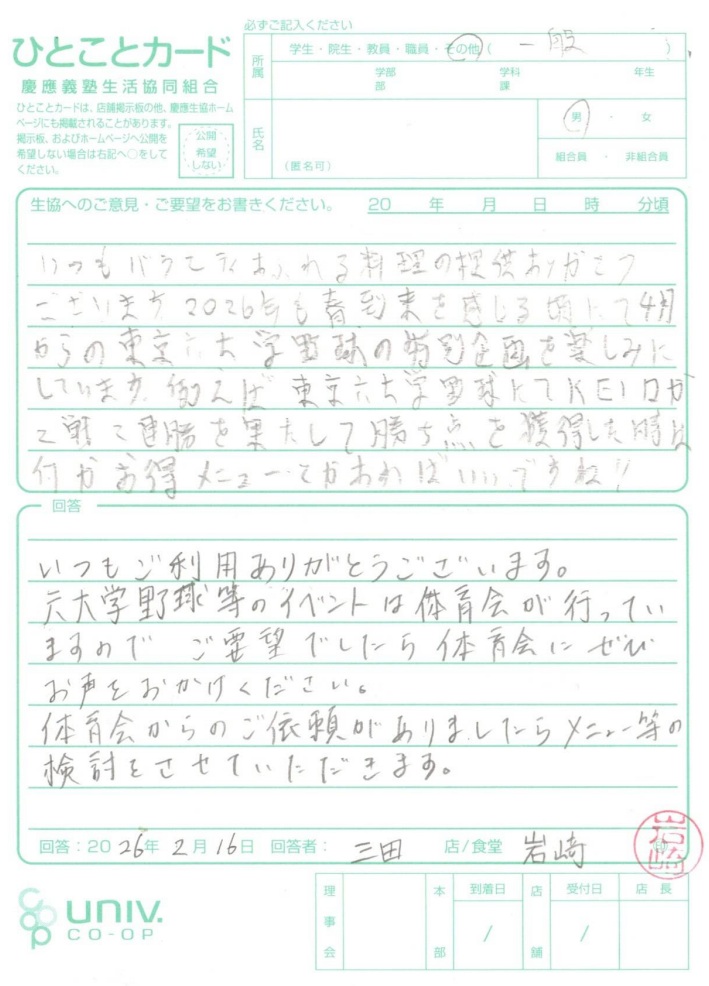 必ずご記入ください
ひとことカード
慶應義塾生活協同組合
ひとことカードは、店舗掲示板の他、慶應生協ホーム
ページにも掲載されることがあります。
掲示板、およびホームページへ公開を
希望しない場合は右記へ○をして
ください。
公開
希望
しない
所属
学生・院生・教員・職員・その他( 一般 )
学部 学科 年生
部 課
氏名
(匿名可)
男 ・ 女
組合員 ・ 非組合員
生協へのご意見・ご要望をお書きください。 20 年 月 日 時 分頃
いつもバラエティあふれる料理の提供ありがとう
ございます 2026年も春到来を感じる頃にて4月
からの東京六大学野球の特別企画を楽しみに
しています。例えば 東京六大学野球にてKEIOが
2戦で連勝を果たして勝ち点を獲得した時は
何かお得メニューとかあればいいですね!!
回答
いつもご利用ありがとうございます。
六大学野球等のイベントは体育会が行ってい
ますので ご要望でしたら体育会にぜひ
お声をおかけください。
体育会からのご依頼がありましたらメニュー等の
検討をさせていただきます。
回答：2026年2月16日 回答者： 三田 店/食堂 岩崎
岩崎
UNIV.
CO-OP
理事会
本部
到着日
/
店舗
受付日
/
店長